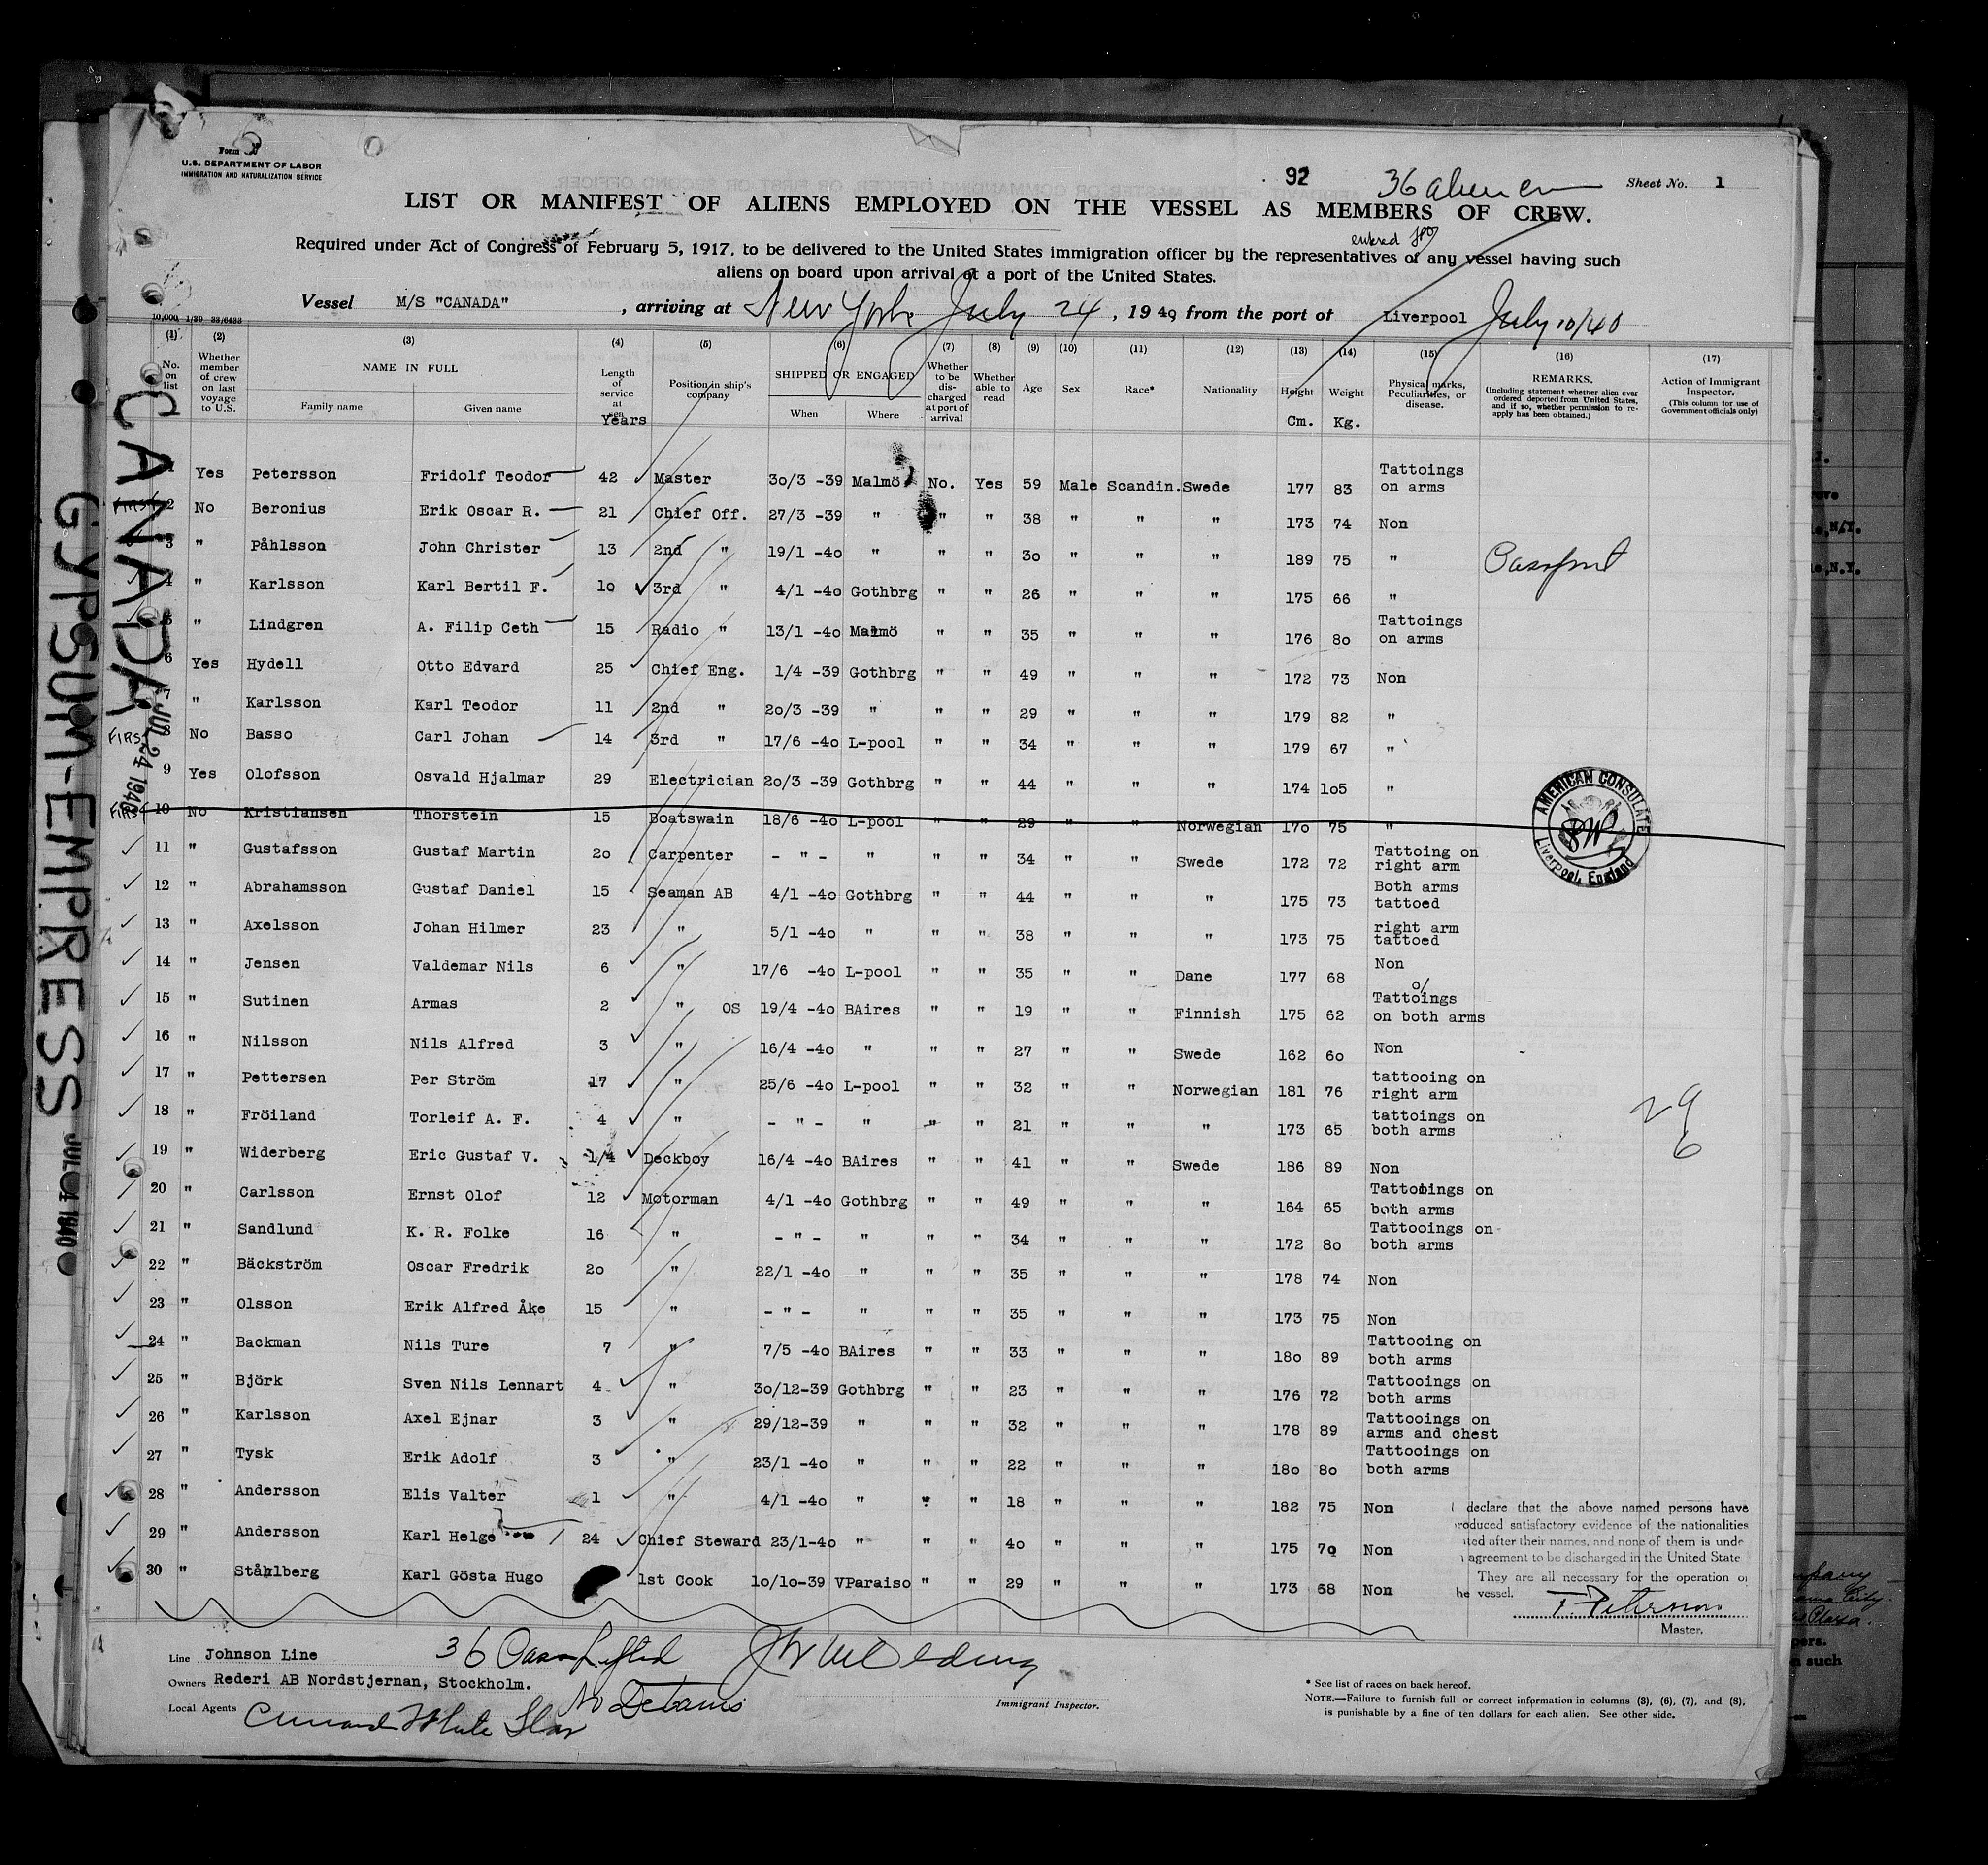 Form
U.S. DEPARTMENT OF LABOR
IMMIGRATION AND NATURALIZATION SERVICE
92
36 alien
Sheet No. 1
LIST OR MANIFEST OF ALIENS EMPLOYED ON THE VESSEL AS MEMBERS OF CREW.
Required under Act of Congress of February 5, 1917, to be delivered to the United States immigration officer by the representatives of any vessel having such
aliens on board upon arrival at a port of the United States.
Vessel M/S "CANADA" , arriving at New York July 24 , 1940 from the port of Liverpool July 10/40
10,000 1/29 33/6433
(1) (2) (3) (4) (5) (6) (7) (8) (9) (10) (11) (12) (13) (14) (15) (16) (17)
No. on list | Whether member of crew on last voyage to U.S. | NAME IN FULL | Family name | Given name | Length of service at sea | Position in ship's company | SHIPPED OR ENGAGED | When | Where | Whether to be discharged at port of arrival | Whether able to read | Age | Sex | Race* | Nationality | Height | Weight | Physical marks, Peculiarities, or disease. | REMARKS. (Including statement whether alien ever ordered deported from United States, and if so, whether permission to re-apply has been obtained.) | Action of Immigrant Inspector. (This column for use of Government officials only)
Years Cm. Kg.
1 Yes Petersson Fridolf Teodor 42 Master 30/3 -39 Malmö No. Yes 59 Male Scandin. Swede 177 83 Tattoings on arms
2 No Beronius Erik Oscar R. 21 Chief Off. 27/3 -39 " " " 38 " " " 173 74 Non
3 " Påhlsson John Christer 13 2nd " 19/1 -40 " " " 30 " " " 189 75 " Passport
4 " Karlsson Karl Bertil F. 10 3rd " 4/1 -40 Gothbrg " " 26 " " " 175 66 "
5 " Lindgren A. Filip Ceth 15 Radio " 13/1 -40 Malmö " " 35 " " " 176 80 Tattoings on arms
6 Yes Hydell Otto Edvard 25 Chief Eng. 1/4 -39 Gothbrg " " 49 " " " 172 73 Non
7 " Karlsson Karl Teodor 11 2nd " 20/3 -39 " " " 29 " " " 179 82 "
FIRST 8 No Basso Carl Johan 14 3rd " 17/6 -40 L-pool " " 34 " " " 179 67 "
9 Yes Olofsson Osvald Hjalmar 29 Electrician 20/3 -39 Gothbrg " " 44 " " " 174 105 "
FIRST 10 No Kristiansen Thorstein 15 Boatswain 18/6 -40 L-pool " " 29 " " Norwegian 170 75 "
11 " Gustafsson Gustaf Martin 20 Carpenter - " - " " " 34 " " Swede 172 72 Tattoing on right arm
12 " Abrahamsson Gustaf Daniel 15 Seaman AB 4/1 -40 Gothbrg " " 44 " " " 175 73 Both arms tattoed
13 " Axelsson Johan Hilmer 23 " 5/1 -40 " " " 38 " " " 173 75 right arm tattoed
14 " Jensen Valdemar Nils 6 " 17/6 -40 L-pool " " 35 " " Dane 177 68 Non
15 " Sutinen Armas 2 " OS 19/4 -40 BAires " " 19 " " Finnish 175 62 Tattoings on both arms
16 " Nilsson Nils Alfred 3 " 16/4 -40 " " " 27 " " Swede 162 60 Non
17 " Pettersen Per Ström 17 " 25/6 -40 L-pool " " 32 " " Norwegian 181 76 tattooing on right arm
18 " Fröiland Torleif A. F. 4 " - " - " " " 21 " " " 173 65 tattoings on both arms
19 " Widerberg Eric Gustaf V. 1/4 Deckboy 16/4 -40 BAires " " 41 " " Swede 186 89 Non
20 " Carlsson Ernst Olof 12 Motorman 4/1 -40 Gothbrg " " 49 " " " 164 65 Tattooings on both arms
21 " Sandlund K. R. Folke 16 " - " - " " " 34 " " " 172 80 Tattooings on both arms
22 " Bäckström Oscar Fredrik 20 " 22/1 -40 " " " 35 " " " 178 74 Non
23 " Olsson Erik Alfred Åke 15 " - " - " " " 35 " " " 173 75 Non
24 " Backman Nils Ture 7 " 7/5 -40 BAires " " 33 " " " 180 89 Tattooing on both arms
25 " Björk Sven Nils Lennart 4 " 30/12-39 Gothbrg " " 23 " " " 176 72 Tattooings on both arms
26 " Karlsson Axel Ejnar 3 " 29/12-39 " " " 32 " " " 178 89 Tattooings on arms and chest
27 " Tysk Erik Adolf 3 " 23/1 -40 " " " 22 " " " 180 80 Tattooings on both arms
28 " Andersson Elis Valter 1 " 4/1 -40 " " " 18 " " " 182 75 Non
29 " Andersson Karl Helge 24 Chief Steward 23/1-40 " " " 40 " " " 175 70 Non
30 " Ståhlberg Karl Gösta Hugo 1st Cook 10/10-39 VParaiso " " 29 " " " 173 68 Non
AMERICAN CONSULATE
Liverpool, England
29
6
I declare that the above named persons have
produced satisfactory evidence of the nationalities
ated after their names, and none of them is unde
agreement to be discharged in the United State
They are all necessary for the operation o
he vessel.
F. Petersson
Master.
Line Johnson Line
36 Pass Lifted
Owners Rederi AB Nordstjernan, Stockholm.
No Detains
Local Agents Cunard White Star
Immigrant Inspector.
* See list of races on back hereof.
NOTE.—Failure to furnish full or correct information in columns (3), (6), (7), and (8),
is punishable by a fine of ten dollars for each alien. See other side.
CANADA
JUL 24 1940
GYPSUM-EMPRESS